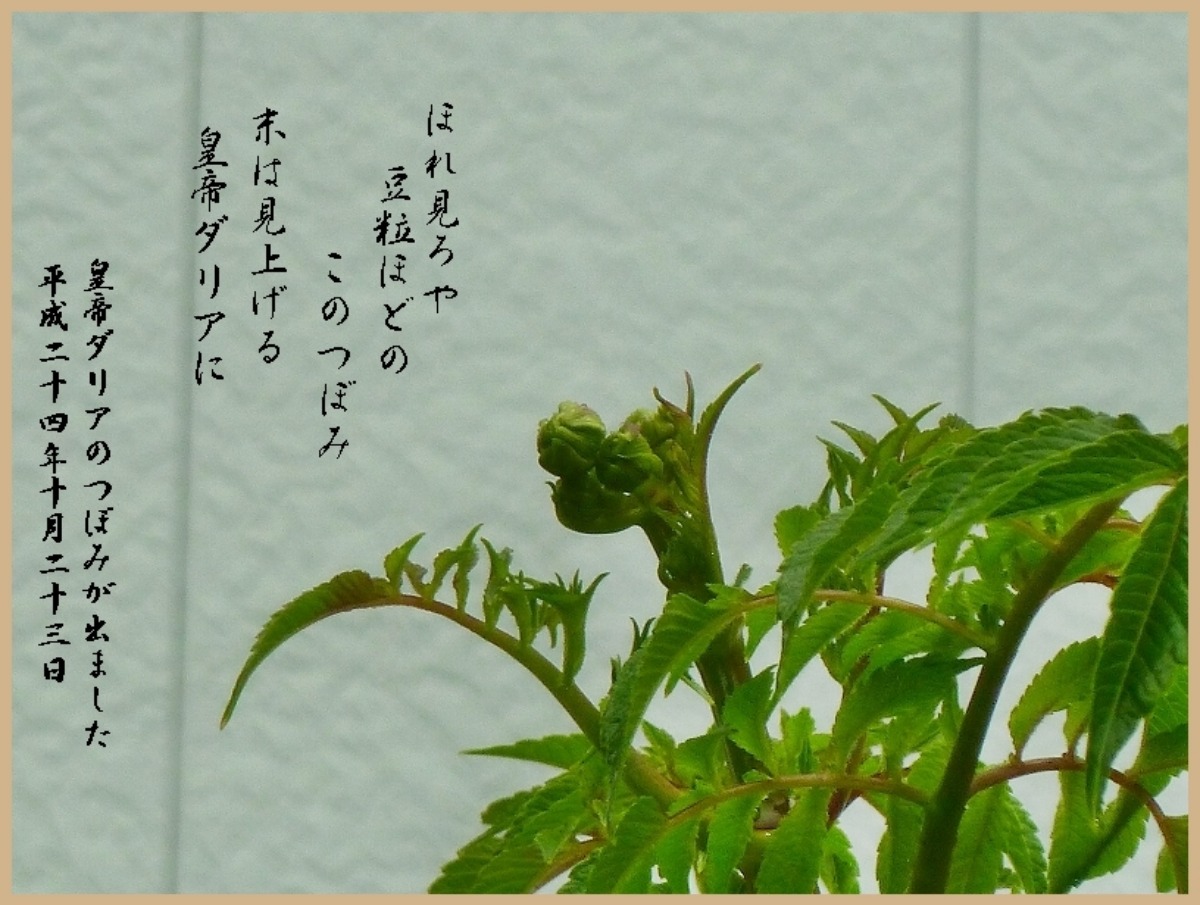 ほれ見ろや
豆粒ほどの
このつぼみ
末は見上げる
皇帝ダリアに
皇帝ダリアのつぼみが出ました
平成二十四年十月二十三日